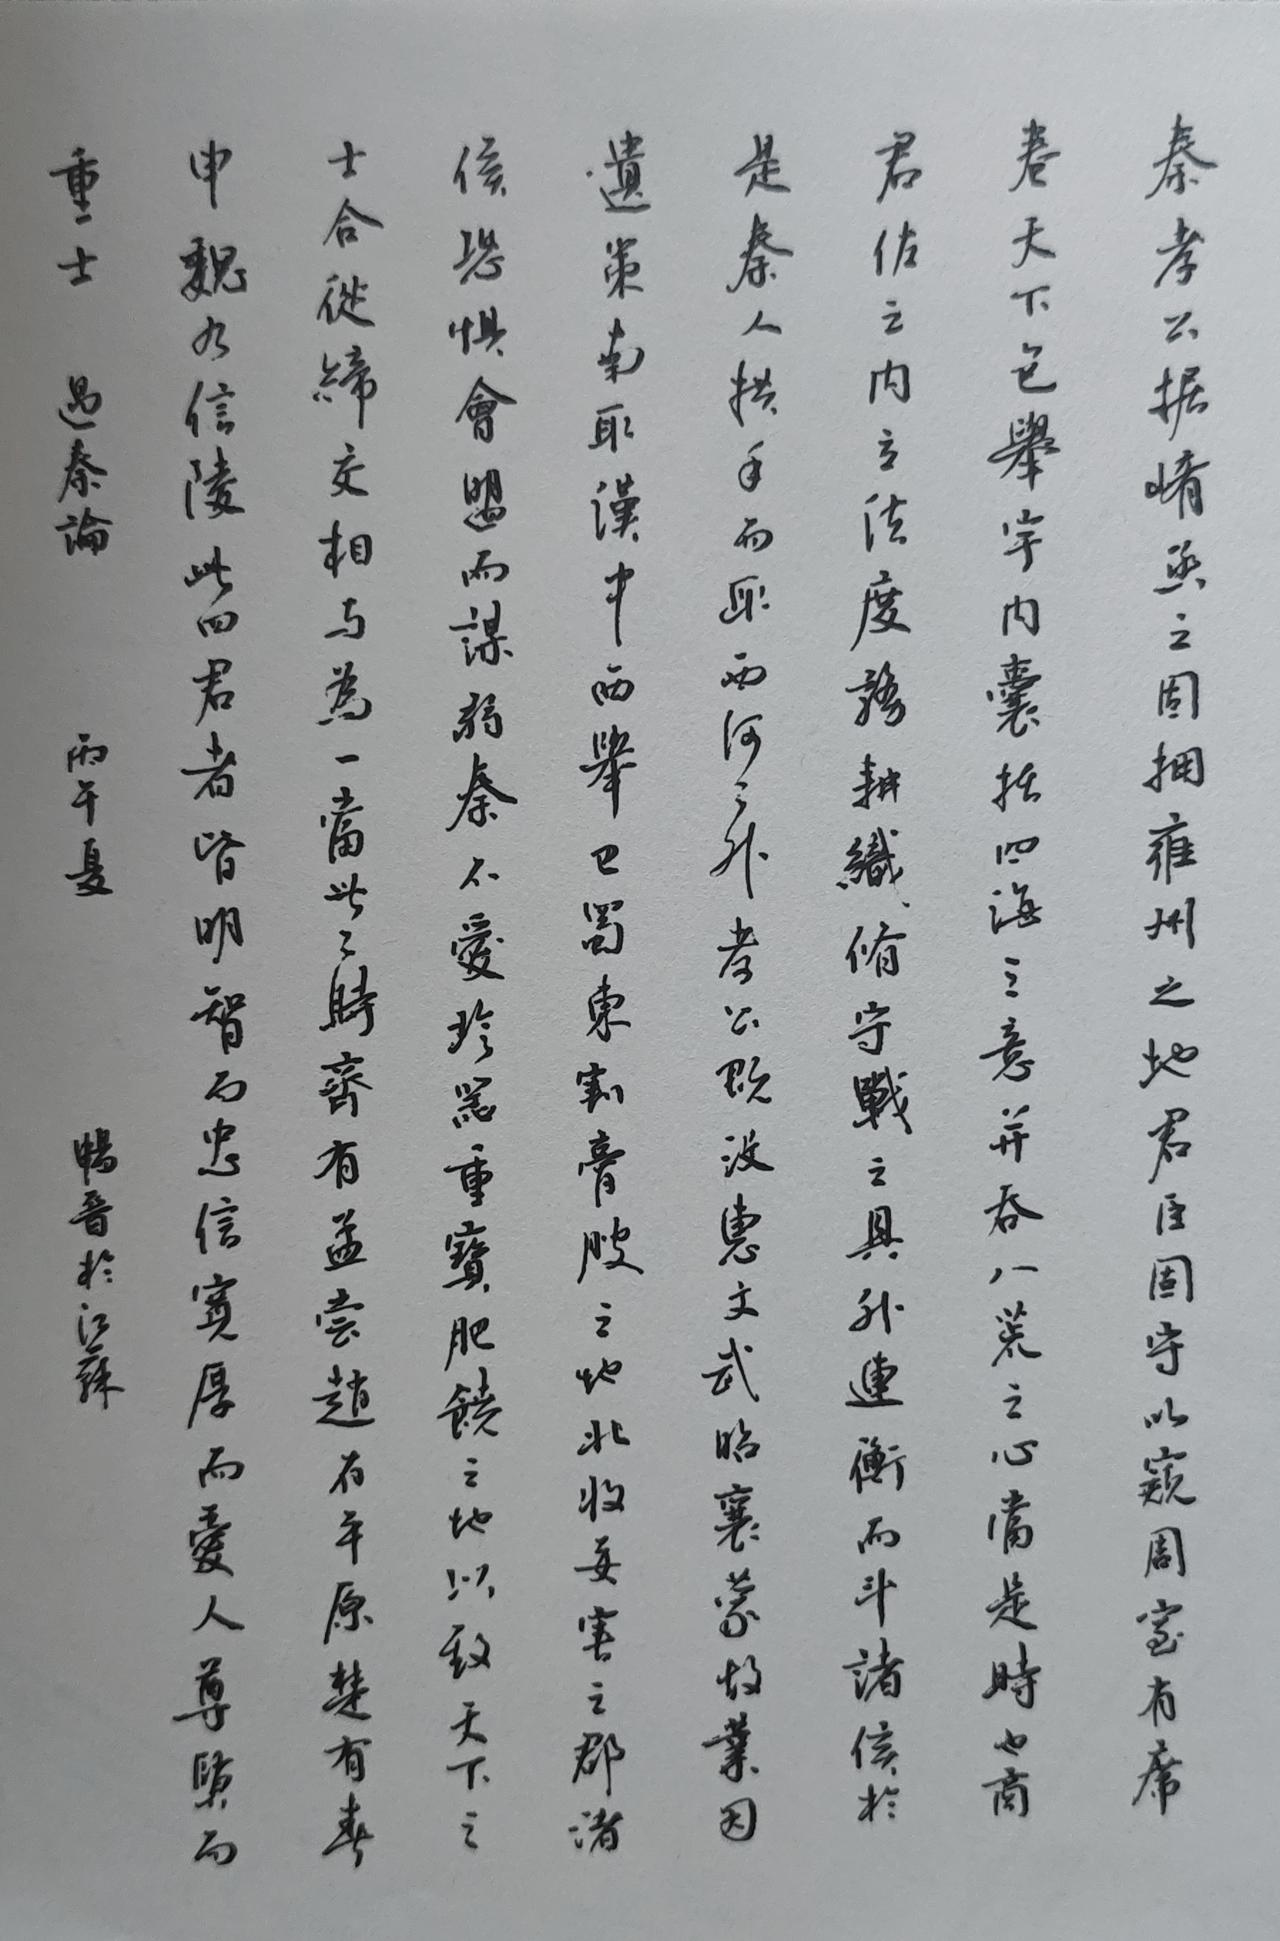 秦孝公据崤函之固拥雍州之地君臣固守以窥周室有席
卷天下包舉宇内囊括四海之意并吞八荒之心當是時也商
君佐之内立法度務耕織脩守戰之具外連衡而斗諸侯於
是秦人拱手而取西河之外孝公既没惠文武昭襄蒙故業因
遺策南取漢中西舉巴蜀東割膏腴之地北收要害之郡諸
侯恐惧會盟而謀弱秦不愛珍器重寶肥饒之地以致天下之
士合從締交相与為一當此之時齊有孟嘗趙有平原楚有春
申魏有信陵此四君者皆明智而忠信寬厚而愛人尊賢而
重士 過秦論 丙午夏 暢晋於江蘇